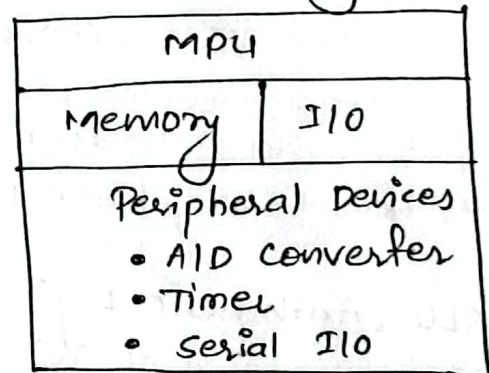 MPU
Memory I/O
Peripheral Devices
• A/D converter
• Timer
• Serial I/O